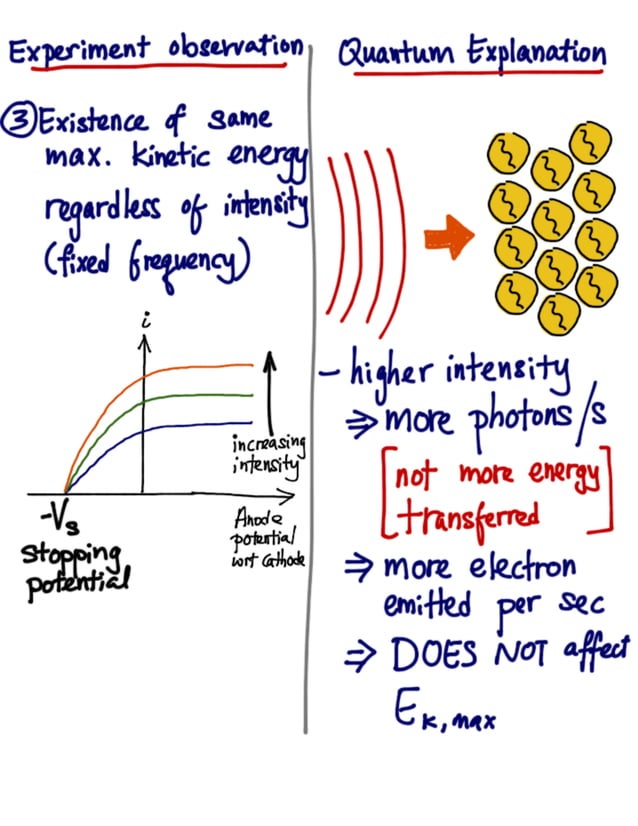 Experiment observation
③ Existence of same
max. kinetic energy
regardless of intensity
(fixed frequency)
i
increasing
intensity
-Vs
Stopping
potential
Anode
potential
wrt Cathode
Quantum Explanation
- higher intensity
⇒ more photons/s
[not more energy
transferred]
⇒ more electron
emitted per sec
⇒ DOES NOT affect
EK, max